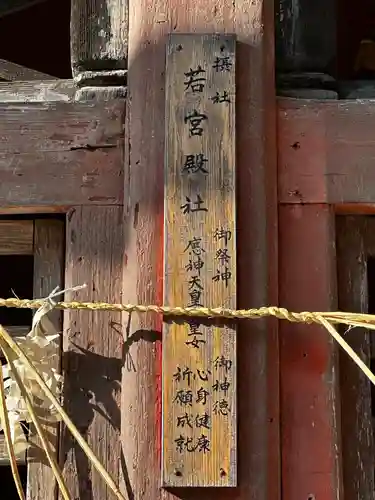 摂社
若宮殿社
御祭神
應神天皇皇女
御神徳
心身健康
祈願成就